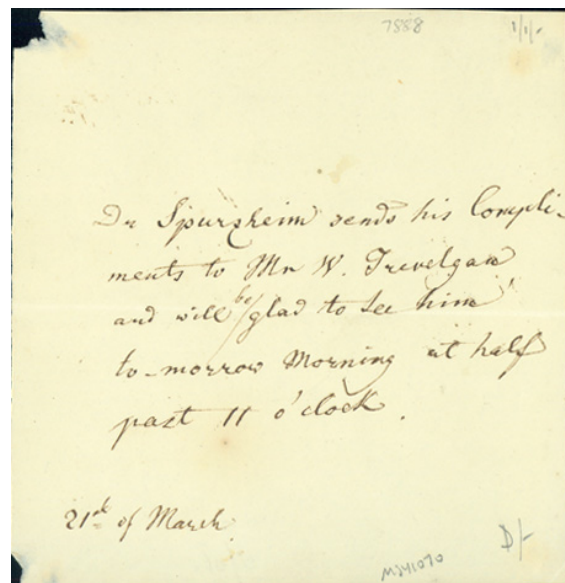 7888
1/1/-
Dr Spurzheim sends his Compli-
ments to Mr W. Trevelyan
and will be glad to see him
to-morrow Morning at half
past 11 o'clock.
21st of March
D/-
MS41070